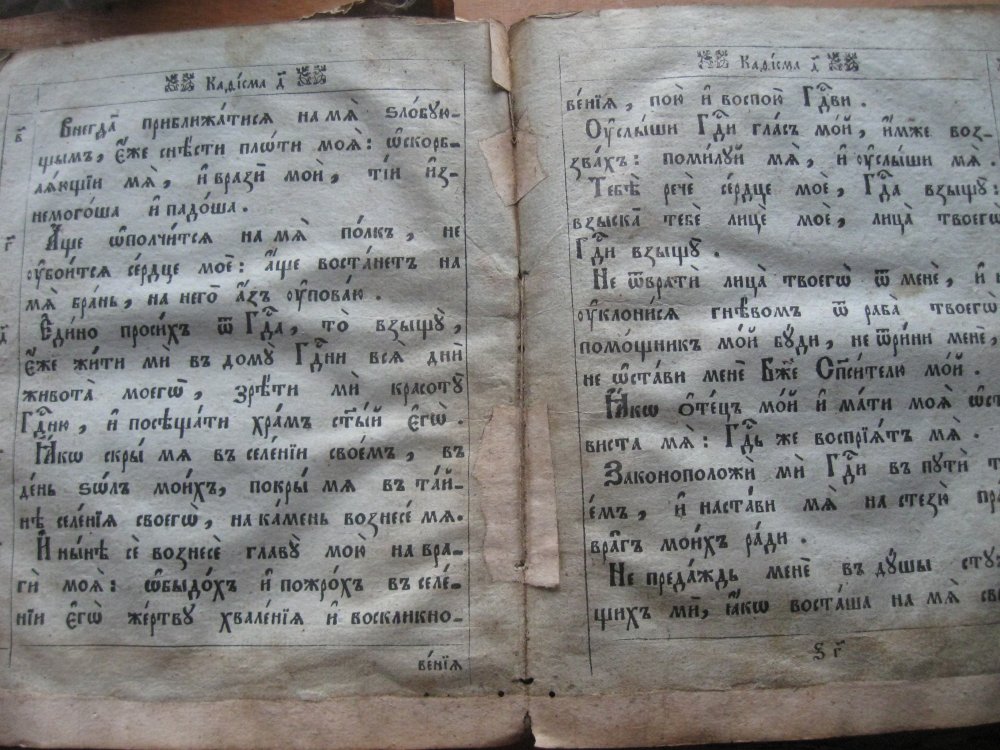 Каѳі́сма д҃
Внегда̀ приближа́тися на мѧ̀ ѕло́бꙋю-
щымъ, є҆́же снѣ́сти плѡ́ти моѧ̑: ѡ҆скорб-
лѧ́ющїи мѧ̀, и҆ вразѝ моѝ, ті́и и҆з-
немого́ша и҆ падо́ша.
А҆́ще ѡ҆полчи́тсѧ на мѧ̀ по́лкъ, не
ᲂу҆бои́тсѧ се́рдце моѐ: а҆́ще воста́нетъ на
мѧ̀ бра́нь, на него̀ а҆́зъ ᲂу҆пова́ю.
Є҆ди́но проси́хъ ѿ Гдⷭ҇а, то̀ взыщꙋ̀,
є҆́же жи́ти мѝ въ домꙋ̀ Гдⷭ҇ни всѧ̑ днѝ
живота̀ моегѡ̀, зрѣ́ти мѝ красотꙋ̀
Гдⷭ҇ню, и҆ посѣща́ти хра́мъ ст҃ы́й є҆гѡ̀.
Ꙗ҆́кѡ скры́ мѧ въ селе́нїи свое́мъ, въ
де́нь ѕѡ́лъ мои́хъ, покры́ мѧ въ та́й-
нѣ селе́нїѧ своегѡ̀, на ка́мень вознесе́ мѧ.
И҆ ны́нѣ сѐ вознесѐ главꙋ̀ мою̀ на вра-
гѝ моѧ̑: ѡ҆быдо́хъ и҆ пожро́хъ въ селе́-
нїи є҆гѡ̀ же́ртвꙋ хвале́нїѧ и҆ воскликно-
ве́нїѧ
Каѳі́сма д҃
ве́нїѧ, пою̀ и҆ воспою̀ Гдⷭ҇ви.
Оу҆слы́ши Гдⷭ҇и гла́съ мо́й, и҆́мже воз-
зва́хъ: поми́лꙋй мѧ̀, и҆ ᲂу҆слы́ши мѧ̀.
Тебѣ̀ речѐ се́рдце моѐ, Гдⷭ҇а взыщꙋ̀:
взыска̀ тебѐ лицѐ моѐ, лица̀ твоегѡ̀
Гдⷭ҇и взыщꙋ̀.
Не ѿвратѝ лица̀ твоегѡ̀ ѿ менѐ, и҆
ᲂу҆клони́сѧ гнѣ́вомъ ѿ раба̀ твоегѡ̀
помо́щникъ мо́й бꙋ́ди, не ѿри́ни менѐ,
не ѡ҆ста́ви менѐ Бж҃е Сп҃си́телю мо́й.
Ꙗ҆́кѡ ѻ҆те́цъ мо́й и҆ ма́ти моѧ̀ ѡ҆ст
виста мѧ̀: Гдⷭ҇ь же воспрїѧ́тъ мѧ̀.
Законоположѝ мѝ Гдⷭ҇и въ пꙋтѝ т
е́мъ, и҆ наста́ви мѧ̀ на стезю̀ пр
вра̑гъ мои́хъ ра́ди.
Не преда́ждь менѐ въ дꙋ́шы стꙋ
щихъ мѝ, ꙗ҆́кѡ воста́ша на мѧ̀ св
ѕ г҃